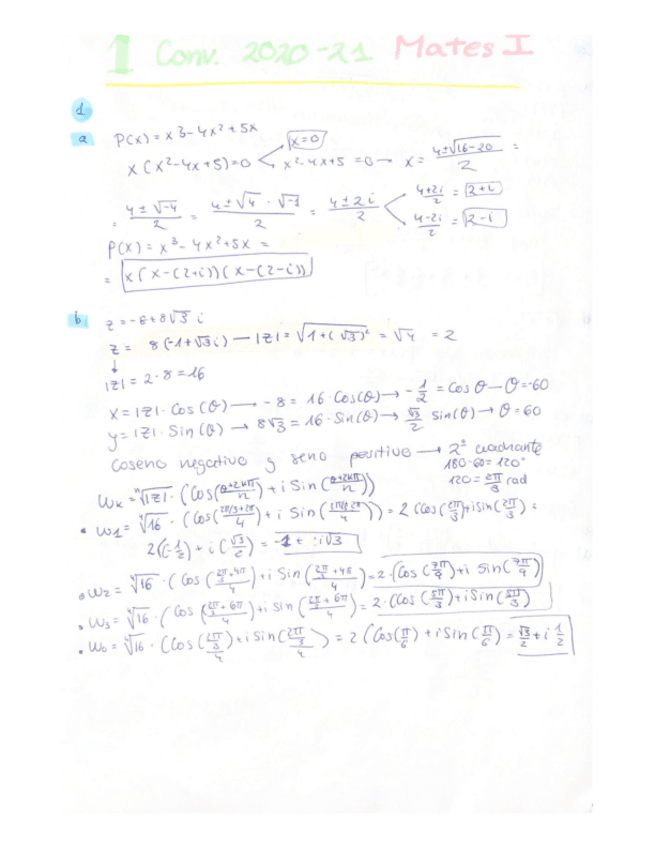 1 Conv. 2020-21 Mates I
1
a P(x) = x3-4x²+5x
x(x²-4x+5)=0 x=0 x²-4x+5=0 → x = (4±√16-20)/2 =
= (4±√-4)/2 = (4±√4·√-1)/2 = (4±2i)/2 (4+2i)/2 = 2+i
(4-2i)/2 = 2-i
P(x) = x³-4x²+5x =
= x(x-(2+i))(x-(2-i))
b z=-8+8√3 i
z= 8(-1+√3i) — |z|=√1+(√3)² = √4 = 2
|z| = 2·8=16
x=|z|·Cos(θ) → -8= 16·Cos(θ) → -1/2 = Cos θ — θ=-60
y=|z|·Sin(θ) → 8√3 = 16·Sin(θ) → √3/2 Sin(θ) → θ=60
Coseno negativo y seno positivo → 2º cuadrante
180-60=120°
120 = 2π/3 rad
Wk = ⁿ√|z| · (Cos(θ+2kπ/n) + i Sin(θ+2kπ/n))
• W1= ⁴√16 · (Cos(2π/3+2π/4) + i Sin( )) = 2(Cos(2π/3)+iSin(2π/3) =
2(-1/2) + i(√3/2) = -1 + i√3
• W2= ⁴√16 · (Cos(2π/3+4π/4)+i Sin(2π/3+4π/4)=2·(Cos( )+i Sin( )
• W3= ⁴√16·(Cos(2π/3+6π/4)+i Sin(2π/3+6π/4) = 2·(Cos(5π/3)+iSin(5π/3)
• W0= ⁴√16 · (Cos(2π/3/4)+iSin(2π/3/4) = 2(Cos(π/6)+iSin(π/6) = √3/2+i 1/2